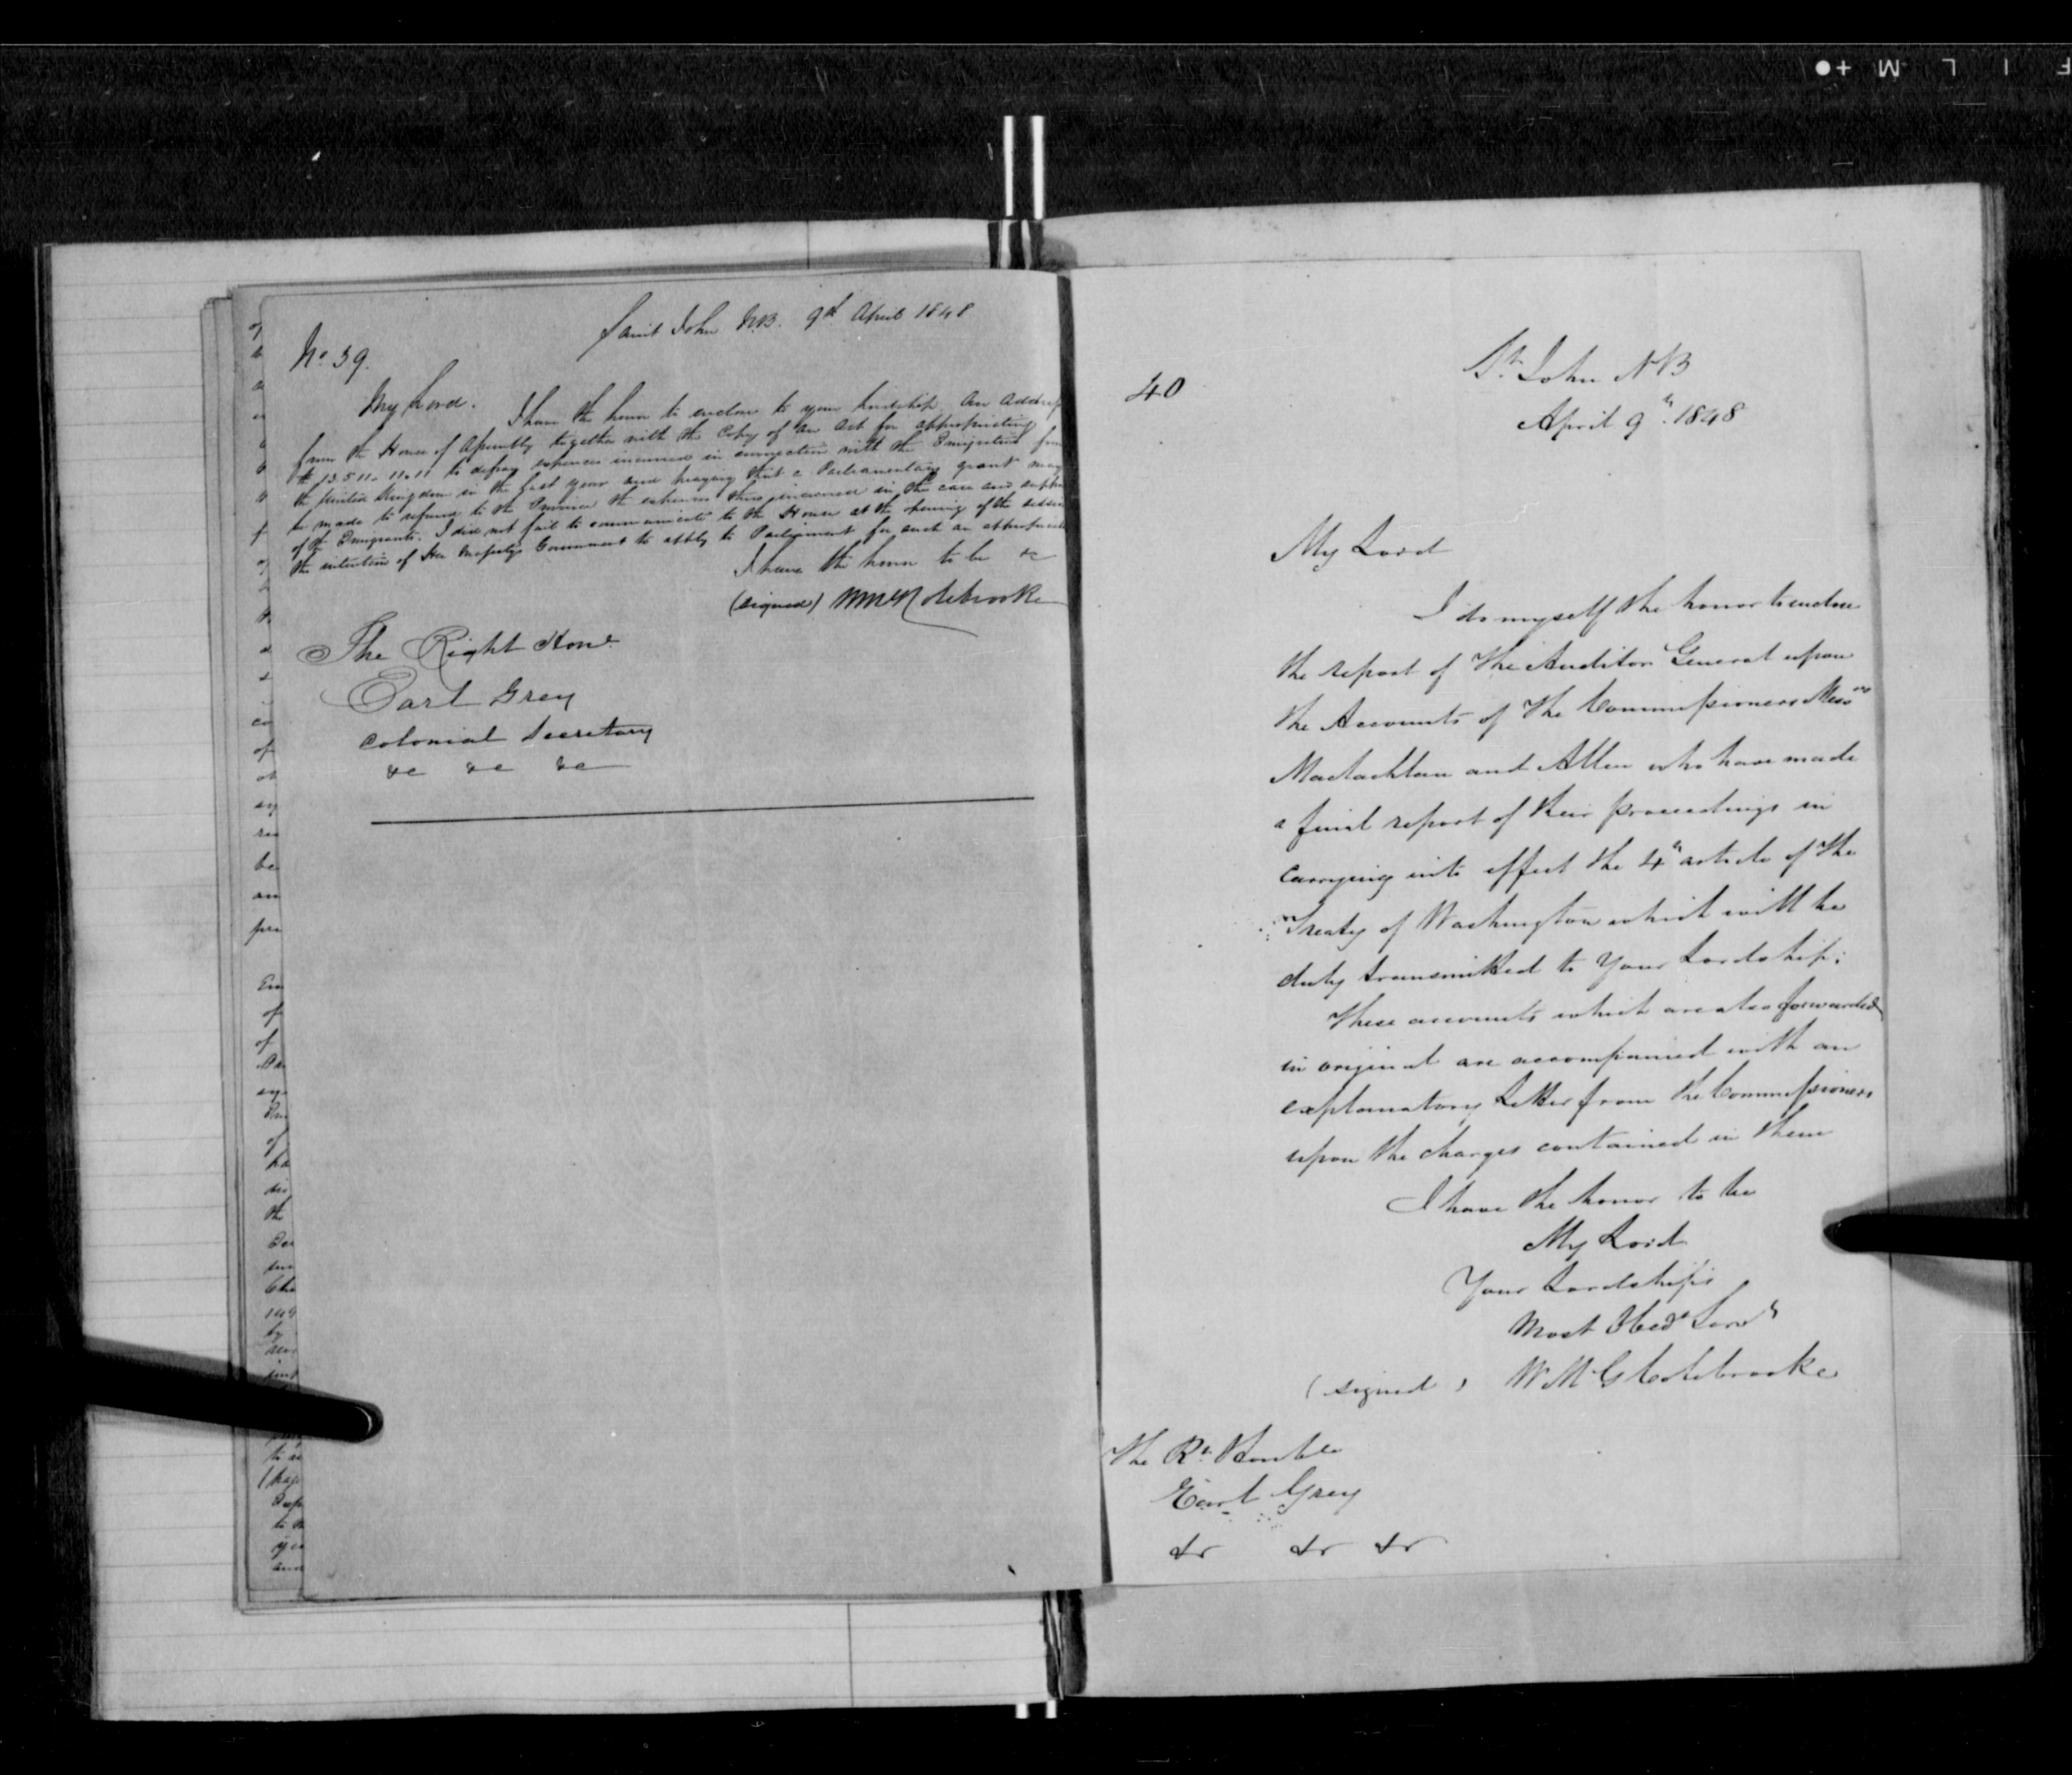 Saint John N.B. 9th April 1848
No. 39.
My Lord.
I have the honor to enclose to your Lordship An Address
from the House of Assembly together with the Copy of an Act for appropriating
to defray expences incurred in connection with the Emigration from
the United Kingdom in the past year and praying that a Parliamentary grant may
be made to refund to the Province the expences thus incurred in the care and
of the Emigrants. I did not fail to communicate to the House at the opening of the
the intention of Her Majestys Government to apply to Parliament for such an
I have the honor to be &c
(signed) WMG Colebrooke
The Right Hon.
Earl Grey
Colonial Secretary
&c &c &c
40
St. John N B
April 9th 1848
My Lord
I do myself the honor to enclose
the report of the Auditor General upon
the Accounts of the Commissioners Messrs
Maclachlan and Allen who have made
a final report of their proceedings in
carrying into effect the 4th article of the
Treaty of Washington which will be
duly transmitted to Your Lordship;
These accounts which are also forwarded
in original are accompanied with an
explanatory Letter from the Commissioners
upon the charges contained in them
I have the honor to be
My Lord
Your Lordship's
Most Obedt Servt
(signed) W M G Colebrooke
The Rt. Honble
Earl Grey
&c &c &c